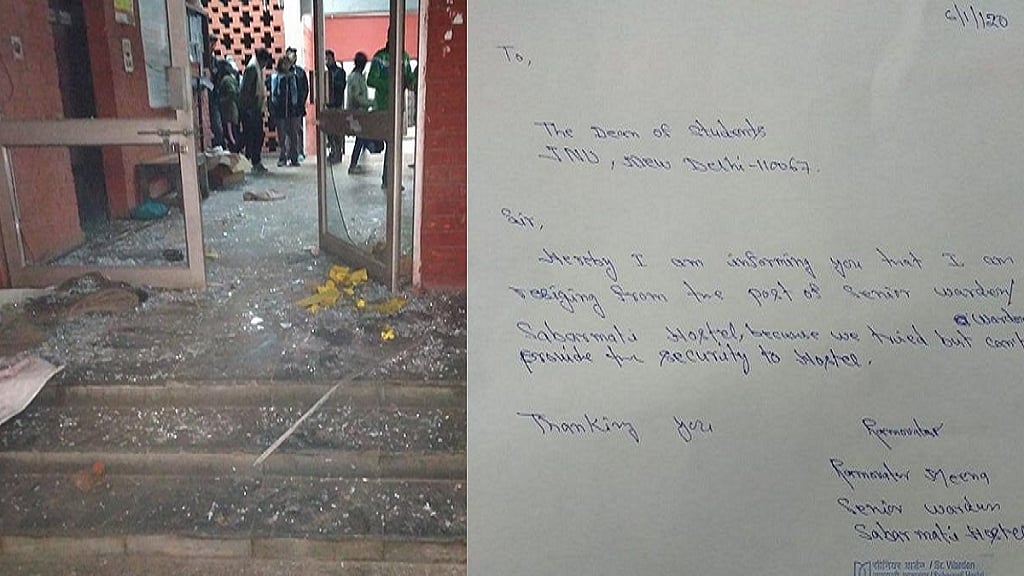 6/1/20
To,
The Dean of Students
JNU, New Delhi-110067.
Sir,
Hereby I am informing you that I am
resiging from the post of Senior Warden/
Warden
Sabarmati Hostel, because we tried but cant
provide the security to Hostel.
Thanking you
Meena
Senior Warden
Sabarmati Hostel
सीनियर वार्डन / Sr. Warden